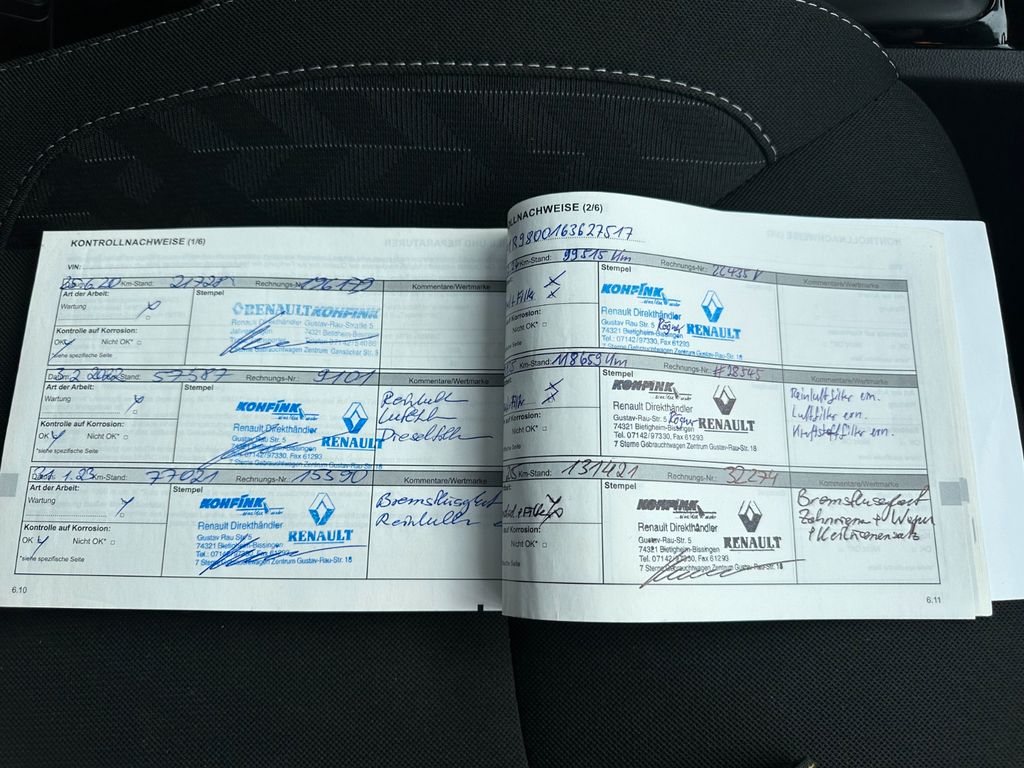 KONTROLLNACHWEISE (1/6)
VIN:
25.6.20 Km-Stand: 21728 Rechnungs-Nr.:
Kommentare/Wertmarke
Art der Arbeit:
Stempel
Wartung
RENAULT KOHFINK
Renault Direkthändler Gustav-Rau-Straße 5
74321 Bietigheim
Kontrolle auf Korrosion:
OK Nicht OK*
*siehe spezifische Seite
3.2.2022 Km-Stand: 57587 Rechnungs-Nr.: 9101
Kommentare/Wertmarke
Art der Arbeit:
Stempel
Wartung
KOHFINK
Renault Direkthändler
Gustav-Rau Str. 5
74321 Bietigheim-Bissingen
RENAULT
7 Sterne Gebrauchtwagen Zentrum Gustav-Rau-Str. 18
Kontrolle auf Korrosion:
OK Nicht OK*
*siehe spezifische Seite
31.1.23 Km-Stand: 77021 Rechnungs-Nr.: 15590
Kommentare/Wertmarke
Art der Arbeit:
Stempel
Wartung
KOHFINK
Renault Direkthändler
Gustav-Rau Str. 5
74321 Bietigheim-Bissingen
RENAULT
7 Sterne Gebrauchtwagen Zentrum Gustav-Rau-Str. 18
Bremsflüssigkeit
Kontrolle auf Korrosion:
OK Nicht OK*
*siehe spezifische Seite
6.10
LLNACHWEISE (2/6)
1R9800163627517
Km-Stand: 99515 Km Rechnungs-Nr.: 26435
Kommentare/Wertmarke
Stempel
KOHFINK
Renault Direkthändler
Gustav Rau Str. 5
74321 Bietigheim-Bissingen
RENAULT
Tel.: 07142/97330, Fax 61293
7 Sterne Gebrauchtwagen Zentrum Gustav-Rau-Str. 18
+Filter
Korrosion:
Nicht OK*
Seite
Km-Stand: 118659 Km Rechnungs-Nr.: #28545
Kommentare/Wertmarke
Stempel
KOHFINK
Renault Direkthändler
Gustav-Rau-Str. 5
74321 Bietigheim-Bissingen
RENAULT
Tel. 07142/97330, Fax 61293
7 Sterne Gebrauchtwagen Zentrum Gustav-Rau-Str. 18
Reinluftfilter ern.
Luftfilter ern.
Kraftstofffilter ern.
Korrosion:
Nicht OK*
Seite
Km-Stand: 131421 Rechnungs-Nr.: 32274
Kommentare/Wertmarke
Stempel
KOHFINK
Renault Direkthändler
Gustav-Rau Str. 5
74321 Bietigheim-Bissingen
RENAULT
Tel.: 07142/97330, Fax 61293
7 Sterne Gebrauchtwagen Zentrum Gustav-Rau-Str. 18
Bremsflüssigkeit
Zahnriemen + Wapu
+ Keilriemensatz
auf Korrosion:
Nicht OK*
Seite
6.11